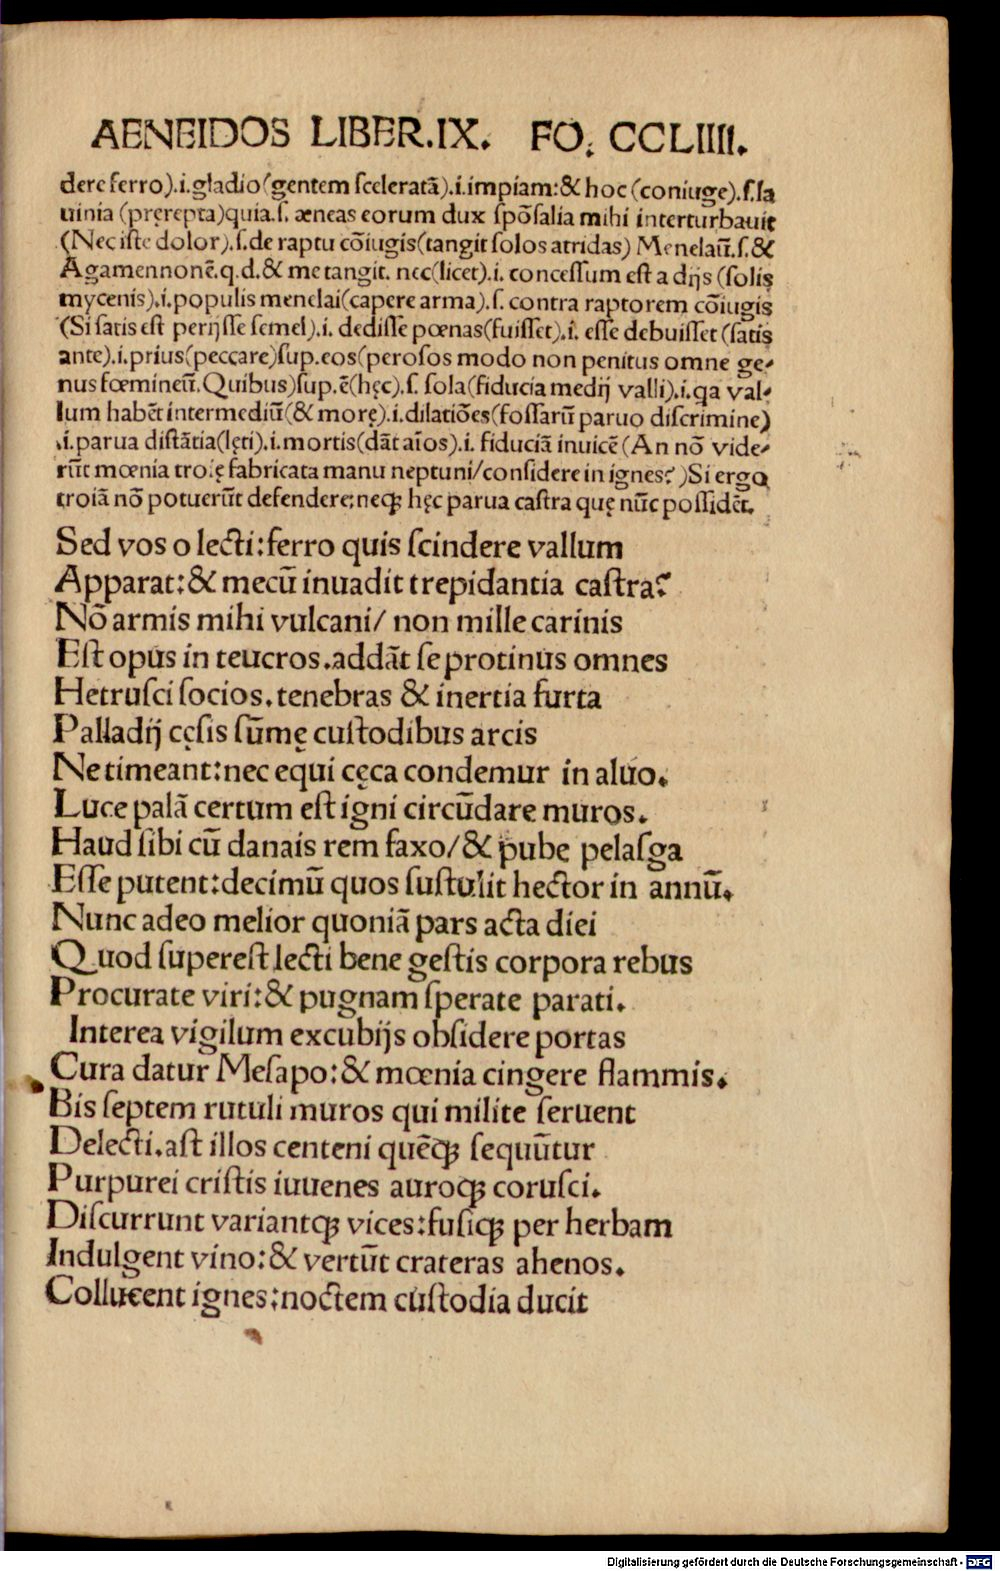 AENEIDOS LIBER.IX. FO. CCLIIII.
dere ferro).i.gladio(gentem sceleratā).i.impiam:& hoc (coniuge).ſ.la
uinia (pręrepta)quia.ſ. æneas eorum dux spōſalia mihi interturbauit
(Nec iſte dolor).ſ.de raptu cōiugis(tangit ſolos atridas) Menelaū.ſ.&
Agamennonē.q.d.& me tangit. nec(licet).i. conceſſum eſt a dijs (ſolis
mycenis).i.populis menelai(capere arma).ſ. contra raptorem cōiugis
(Si ſatis eſt perijſſe ſemel).i. dediſſe pœnas(fuiſſet).i. eſſe debuiſſet (ſatis
ante).i.prius(peccare)ſup.eos(peroſos modo non penitus omne ge-
nus fœmineū.Quibus)ſup.ē(hęc).ſ. ſola(fiducia medij valli).i.qa val-
lum habēt intermediū(& morę).i.dilatiōes(foſſarū paruo diſcrimine)
.i.parua diſtātia(lęti).i.mortis(dāt aīos).i. fiduciā inuicē(An nō vide-
rūt mœnia troię fabricata manu neptuni/conſidere in ignes?)Si ergo
troiā nō potuerūt defendere:neqꝫ hęc parua caſtra quę nūc poſſidēt.
Sed vos o lecti:ferro quis ſcindere vallum
Apparat:& mecū inuadit trepidantia caſtra?
Nō armis mihi vulcani/ non mille carinis
Eſt opus in teucros.addāt ſe protinus omnes
Hetruſci ſocios.tenebras & inertia furta
Palladij cęſis ſūmę cuſtodibus arcis
Ne timeant:nec equi cęca condemur in aluo.
Luce palā certum eſt igni circūdare muros.
Haud ſibi cū danais rem faxo/& pube pelaſga
Eſſe putent:decimū quos ſuſtulit hector in annū.
Nunc adeo melior quoniā pars acta diei
Quod ſupereſt lecti bene geſtis corpora rebus
Procurate viri:& pugnam ſperate parati.
Interea vigilum excubijs obſidere portas
Cura datur Meſapo:& mœnia cingere flammis.
Bis ſeptem rutuli muros qui milite ſeruent
Delecti.aſt illos centeni quēqꝫ ſequūtur
Purpurei criſtis iuuenes auroqꝫ coruſci.
Diſcurrunt variantqꝫ vices:fuſiqꝫ per herbam
Indulgent vino:& vertūt crateras ahenos.
Collucent ignes:noctem cuſtodia ducit
Digitalisierung gefördert durch die Deutsche Forschungsgemeinschaft - DFG